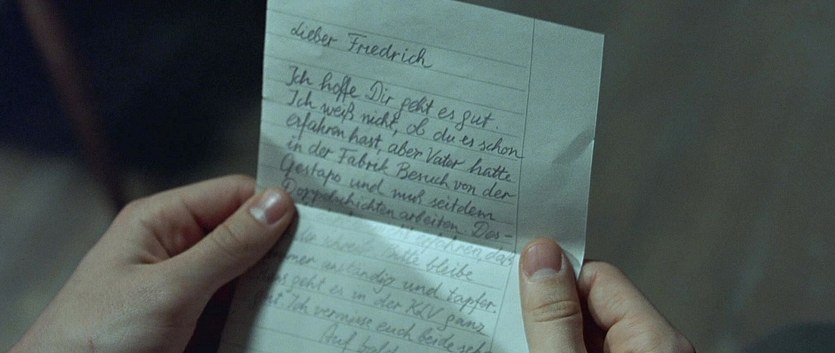 Lieber Friedrich
Ich hoffe Dir geht es gut.
Ich weiß nicht, ob du es schon
erfahren hast, aber Vater hatte
in der Fabrik Besuch von der
Gestapo und muß seitdem
Doppelschichten arbeiten. Das-
erfahren, daß
bleibe
immer anständig und tapfer.
uns geht es in der KLV ganz
gut. Ich vermisse euch beide sehr
Auf bald